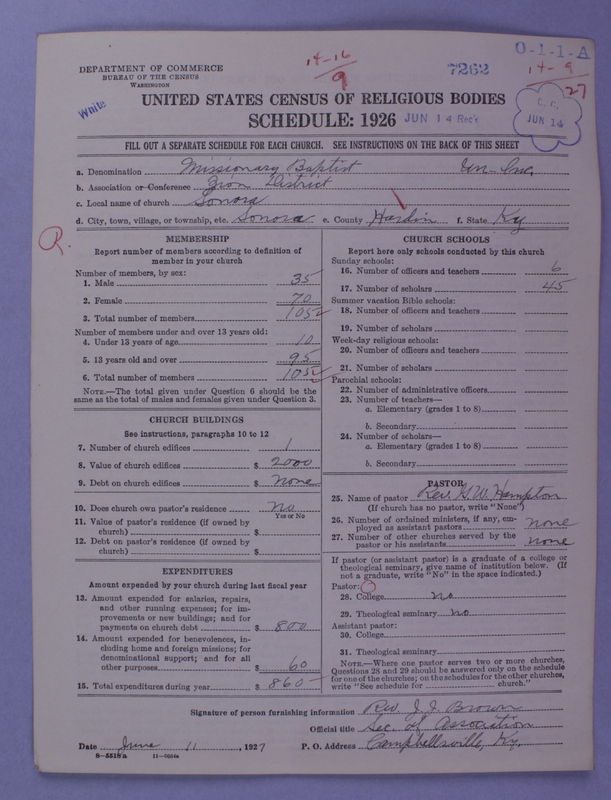 O-1-1-A
14-16
9
7262
14-9
27
DEPARTMENT OF COMMERCE
BUREAU OF THE CENSUS
WASHINGTON
White
UNITED STATES CENSUS OF RELIGIOUS BODIES
SCHEDULE: 1926
JUN 14 Rec'd
C. C.
JUN 14
FILL OUT A SEPARATE SCHEDULE FOR EACH CHURCH. SEE INSTRUCTIONS ON THE BACK OF THIS SHEET
a. Denomination Missionary Baptist Un. Inc.
b. Association or Conference Zion District
c. Local name of church Sonora
d. City, town, village, or township, etc. Sonora e. County Hardin f. State Ky
R.
MEMBERSHIP
Report number of members according to definition of
member in your church
Number of members, by sex:
1. Male 35
2. Female 70
3. Total number of members 105
Number of members under and over 13 years old:
4. Under 13 years of age 10
5. 13 years old and over 95
6. Total number of members 105
NOTE.—The total given under Question 6 should be the
same as the total of males and females given under Question 3.
CHURCH BUILDINGS
See instructions, paragraphs 10 to 12
7. Number of church edifices 1
8. Value of church edifices $ 2000
9. Debt on church edifices $ none
10. Does church own pastor's residence no
Yes or No
11. Value of pastor's residence (if owned by
church) $
12. Debt on pastor's residence (if owned by
church) $
EXPENDITURES
Amount expended by your church during last fiscal year
13. Amount expended for salaries, repairs,
and other running expenses; for im-
provements or new buildings; and for
payments on church debt $ 800
14. Amount expended for benevolences, in-
cluding home and foreign missions; for
denominational support; and for all
other purposes $ 60
15. Total expenditures during year $ 860
CHURCH SCHOOLS
Report here only schools conducted by this church
Sunday schools:
16. Number of officers and teachers 6
17. Number of scholars 45
Summer vacation Bible schools:
18. Number of officers and teachers
19. Number of scholars
Week-day religious schools:
20. Number of officers and teachers
21. Number of scholars
Parochial schools:
22. Number of administrative officers
23. Number of teachers—
a. Elementary (grades 1 to 8)
b. Secondary
24. Number of scholars—
a. Elementary (grades 1 to 8)
b. Secondary
PASTOR
25. Name of pastor Rev. G. W. Hampton
(If church has no pastor, write "None")
26. Number of ordained ministers, if any, em-
ployed as assistant pastors none
27. Number of other churches served by the
pastor or his assistants none
If pastor (or assistant pastor) is a graduate of a college or
theological seminary, give name of institution below. (If
not a graduate, write "No" in the space indicated.)
Pastor:
28. College no
29. Theological seminary no
Assistant pastor:
30. College
31. Theological seminary
NOTE.—Where one pastor serves two or more churches,
Questions 28 and 29 should be answered only on the schedule
for one of the churches; on the schedules for the other churches,
write "See schedule for church."
Signature of person furnishing information Rev J. J. Brown
Official title Sec. of Association
Date June 11, 1927 P. O. Address Campbellsville, Ky.
8-5518a